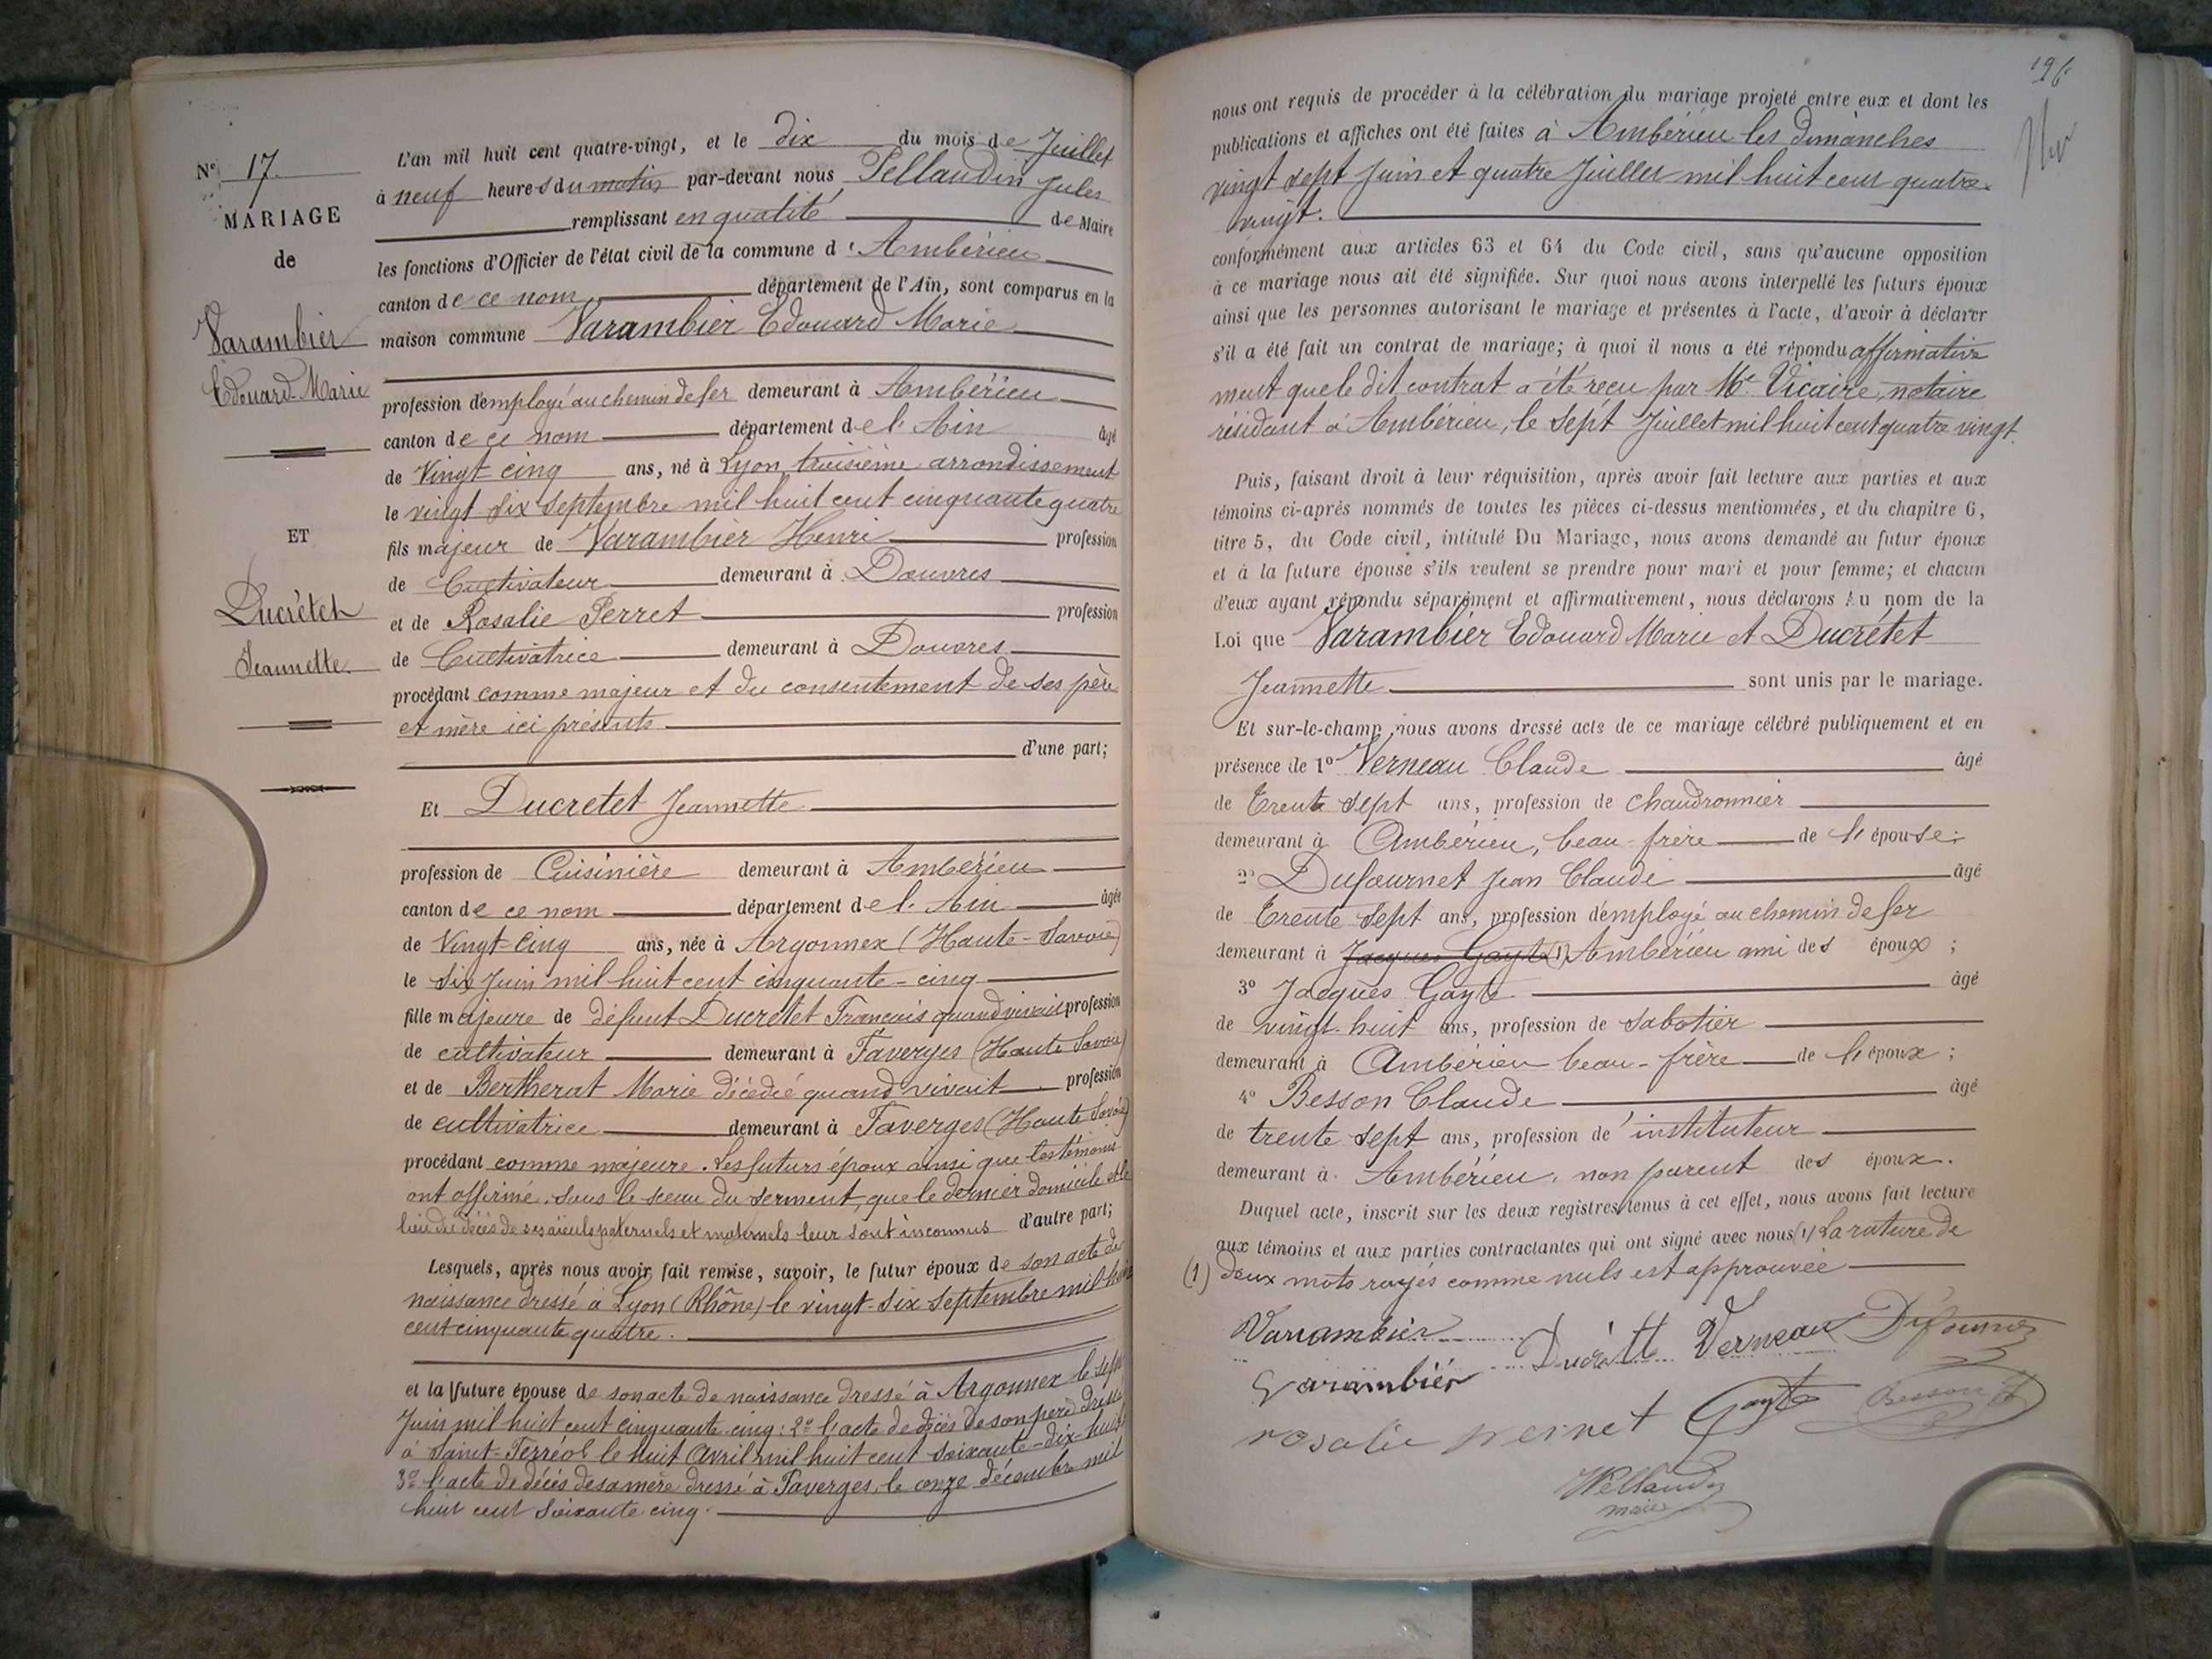 N° 17.
MARIAGE
de
Varambier
Edouard-Marie
ET
Ducrètet
Jeannette
L'an mil huit cent quatre-vingt, et le dix du mois de Juillet
à neuf heures du matin par-devant nous Pellaudin Jules
remplissant en qualité de Maire
les fonctions d'Officier de l'état civil de la commune d'Ambérieu
canton de ce nom département de l'Ain, sont comparus en la
maison commune Varambier Edouard Marie
profession d'employé au chemin de fer demeurant à Ambérieu
canton de ce nom département de l'Ain âgé
de Vingt-cinq ans, né à Lyon, troisième arrondissement
le vingt-six septembre mil huit cent cinquante quatre
fils majeur de Varambier Henri profession
de Cultivateur demeurant à Douvres
et de Rosalie Perret profession
de Cultivatrice demeurant à Douvres
procédant comme majeur et du consentement de ses père
et mère ici présents
d'une part;
Et Ducretet Jeannette
profession de Cuisinière demeurant à Ambérieu
canton de ce nom département de l'Ain âgée
de Vingt-Cinq ans, née à Argonnex (Haute-Savoie)
le six Juin mil huit cent cinquante-cinq
fille majeure de défunt Ducretet François quand vivait profession
de cultivateur demeurant à Faverges (Haute Savoie)
et de Bertherat Marie décédée quand vivait profession
de cultivatrice demeurant à Faverges (Haute Savoie)
procédant comme majeure. Les futurs époux ainsi que les témoins
ont affirmé, sous le sceau du serment, que le dernier domicile et le
lieu du décès de ses aïeuls paternels et maternels leur sont inconnus d'autre part;
Lesquels, après nous avoir fait remise, savoir, le futur époux de son acte de
naissance dressé à Lyon (Rhône) le vingt-six septembre mil huit
cent cinquante quatre.
et la future épouse de son acte de naissance dressé à Argonnex le sept
Juin mil huit cent cinquante-cinq : 2° l'acte de décès de son père dressé
à Saint-Ferréol le huit Avril mil huit cent soixante-dix-huit
3° l'acte de décès de sa mère dressé à Faverges, le onze décembre mil
huit cent soixante cinq.
196
nous ont requis de procéder à la célébration du mariage projeté entre eux et dont les
publications et affiches ont été faites à Ambérieu les dimanches
vingt sept Juin et quatre Juillet mil huit cent quatre-
vingt.
conformément aux articles 63 et 64 du Code civil, sans qu'aucune opposition
à ce mariage nous ait été signifiée. Sur quoi nous avons interpellé les futurs époux
ainsi que les personnes autorisant le mariage et présentes à l'acte, d'avoir à déclarer
s'il a été fait un contrat de mariage; à quoi il nous a été répondu affirmative
ment que le dit contrat a été reçu par Me Vicaire, notaire
résidant à Ambérieu, le sept Juillet mil huit cent quatre vingt.
Puis, faisant droit à leur réquisition, après avoir fait lecture aux parties et aux
témoins ci-après nommés de toutes les pièces ci-dessus mentionnées, et du chapitre 6,
titre 5, du Code civil, intitulé Du Mariage, nous avons demandé au futur époux
et à la future épouse s'ils veulent se prendre pour mari et pour femme; et chacun
d'eux ayant répondu séparément et affirmativement, nous déclarons au nom de la
Loi que Varambier Edouard Marie et Ducrétet
Jeannette sont unis par le mariage.
Et sur-le-champ nous avons dressé acte de ce mariage célébré publiquement et en
présence de 1° Verneau Claude âgé
de Trente sept ans, profession de chaudronnier
demeurant à Ambérieu, beau-frère de l'épouse;
2° Dufournet Jean Claude âgé
de Trente sept ans, profession d'employé au chemin de fer
demeurant à Jacques Gayte (1) Ambérieu ami des époux ;
3° Jacques Gayte âgé
de vingt-huit ans, profession de sabotier
demeurant à Ambérieu beau-frère de l'époux ;
4° Besson Claude âgé
de trente sept ans, profession de instituteur
demeurant à Ambérieu, non parent des époux.
Duquel acte, inscrit sur les deux registres tenus à cet effet, nous avons fait lecture
aux témoins et aux parties contractantes qui ont signé avec nous (1) La rature de
(1) deux mots rayés comme nuls est approuvée
Varambier Ducrétet Verneau Dufournet
Varambier
rosalie perret Gayte Besson
Pellaudin
maire